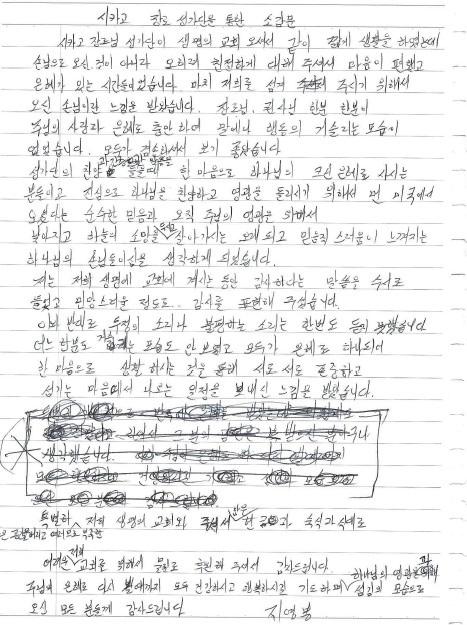 시카고 장로 성가단을 통한 소감문
시카고 장로님 성가단이 생명의 교회 오셔서 같이 짧게 생활을 하였는데
손님으로 오신 것이 아니라 오히려 친절하게 대해 주셔서 마음이 편했고
은혜가 있는 시간들이었습니다. 마치 저희를 섬겨 주시기 위해서
오신 손님이란 느낌을 받았습니다. 장로님, 권사님 한분 한분이
주님의 사랑과 은혜로 충만하여 말이나 행동의 거슬리는 모습이
없었습니다. 모두가 겸손하셔서 보기 좋았습니다
성가단의 찬양 들을때 한 마음으로 하나님의 크신 은혜로 사시는
분들이고 진심으로 하나님을 찬양하고 영광을 돌리시기 위해서 먼 미국에서
오셨다는 순수한 믿음과 오직 주님의 영광을 위해서
낮아지고 하늘의 소망을 두고 살아가시는 모습이 느껴지는
하나님의 사람들이심을 생각하게 되었습니다.
저는 저희 생명의 교회에 계시는 동안 감사하다는 말씀을 수시로
들었고 민망스러운 정도로.. 감사를 표현해 주셨습니다.
이와 반대로 투정의 소리나 불평하는 소리는 한번도 듣지 못했습니다
어느 한분도 모습도 안 보였고 모두가 은혜로 하나되어
한 마음으로 생활 하시는 것을 통해 서로 서로 존중하고
섬기는 마음에서 나오는 일정을 보내신 느낌을 받았습니다.
생각했습니다.
특별히 저희 생명의 교회와 주셔서 많은 숙식과 식대로
어려운 저희 교회를 위해서 물질로 후원해 주셔서 감사드립니다. 하나님의 영광을 위해
주님의 은혜로 다시 뵐때까지 모두 건강하시고 행복하시길 기도하며 섬김의 모습으로
오신 모든 분들께 감사드립니다 지영봉